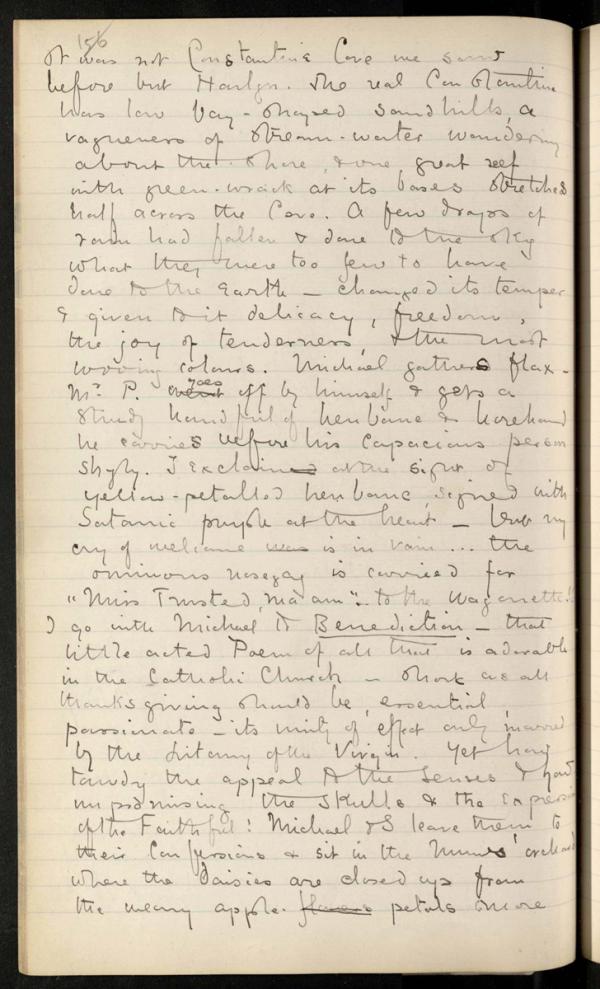 156
It was not Constantine Cove we saw
before but Harlyn. The real Constantine
has low bay-shaped sandhills, a
vagueness of stream-water wandering
about the shore, & one great reef
with green-wrack at its bases stretched
half across the Cove. A few drops of
rain had fallen & done to the sky
what they were too few to have
done to the Earth — changed its temper
& given to it delicacy, freedom,
the joy of tenderness, & the most
wooing colours. Michael gathers flax –
Mr. P. went goes off by himself & gets a
sturdy handful of henbane & horehound
he carries before his capacious person
shyly. I exclaimed at the sight of
yellow-petalled henbane, signed with
Satanic purple at the heart — but my
cry of welcome was is in vain ... the
ominous nosegay is carried for
"Miss Trusted, ma'am" – to the wagonette!!
I go with Michael to Benediction — that
little acted Poem of all that is adorable
in the Catholic Church — short as all
thanksgiving should be, essential,
passionate — its unity of effect only marred
by the Litany of the Virgin. Yet how
tawdry the appeal to the senses & how
unpromising the skulls & the expression
of the Faithful! Michael & I leave them to
their Confessions & sit in the Nuns' orchard
where the daisies are closed up from
the many apple- flowers petals more